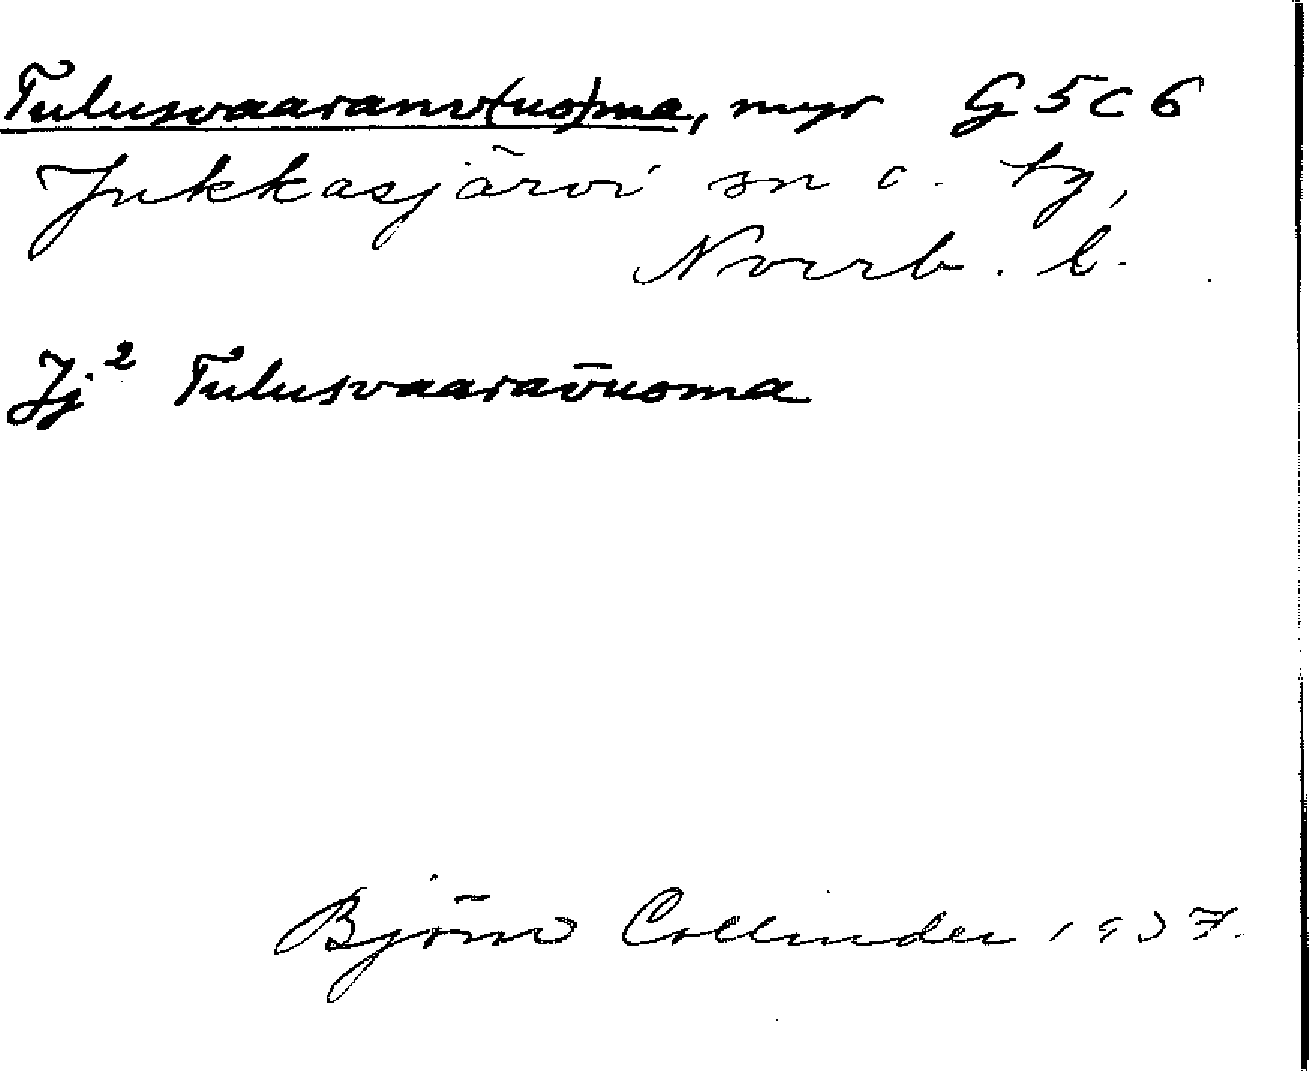 Tulusvaaranv(uo)ma, myr G 5 c 6
Jukkasjärvi sn o. tg,
Norrb. l.
Jj² Tulusvaaravuoma
Björn Collinder 1937.